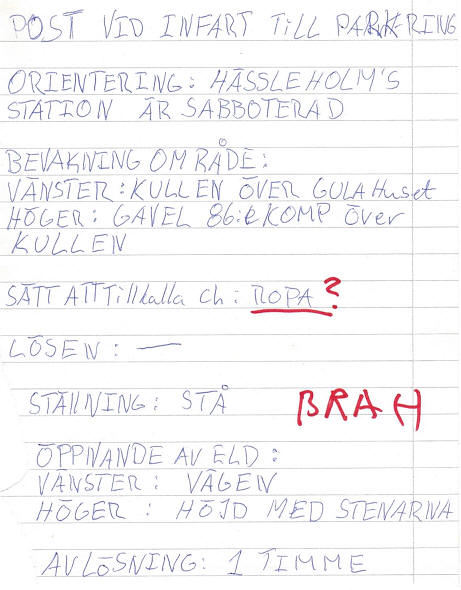 POST VID INFART TILL PARKRING
ORIENTERING: HÄSSLEHOLM'S
STATION ÄR SABBOTERAD
BEVAKNING OMRÅDE:
VÄNSTER: KULLEN ÖVER GULA Huset
HÖGER: GAVEL 86:e KOMP Över
KULLEN
SÄTT ATT Tillkalla ch: ROPA?
LÖSEN: —
STÄLLNING: STÅ
BRA H
ÖPPNANDE AV ELD:
VÄNSTER: VÄGEN
HÖGER: HÖJD MED STENARNA
AVLÖSNING: 1 TIMME